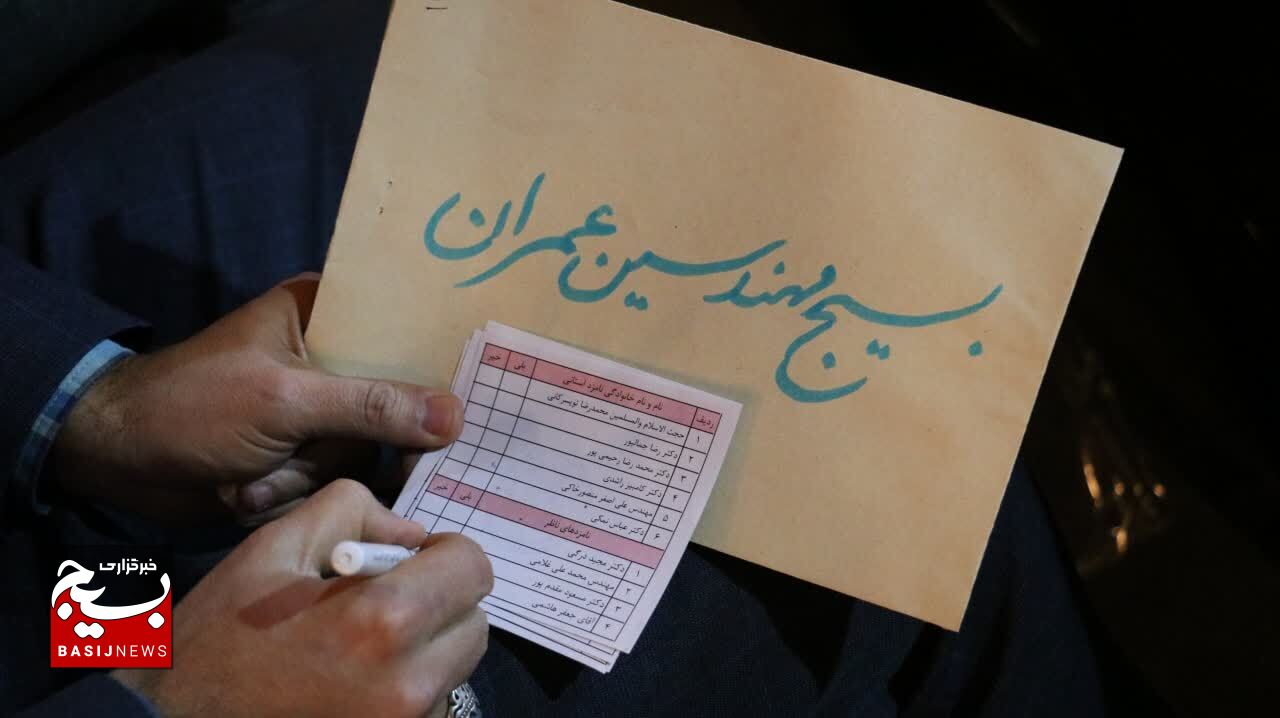 بسیج مهندسین عمران
ردیف نام و نام خانوادگی نامزد استانی بلی خیر
۱ حجت الاسلام والمسلمین محمدرضا تویسرکانی
۲ دکتر رضا جمالپور
۳ دکتر محمد رضا رحیمی پور
۴ دکتر کامبیز راشدی
۵ مهندس علی اصغر منصورخاکی
۶ دکتر عباس نمکی
نامزدهای ناظر بلی خیر
۱ دکتر مجید درگی
۲ مهندس محمد علی غلامی
۳ دکتر مسعود مقدم پور
۴ آقای جعفر هاشمی
خبرگزاری
بسیج
BASIJNEWS